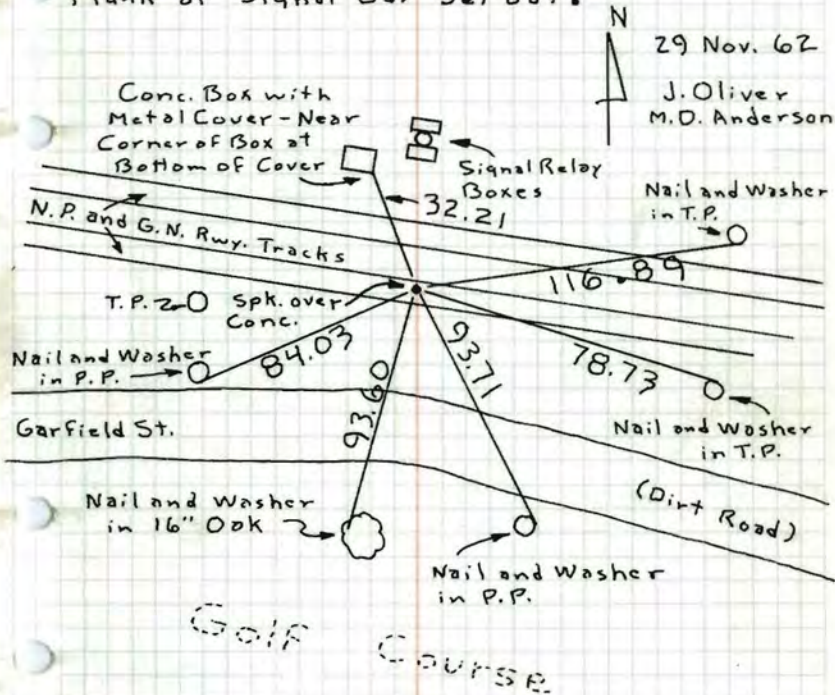 N
29 Nov. 62
J. Oliver
M.D. Anderson
Conc. Box with
Metal Cover - Near
Corner of Box at
Bottom of Cover
Signal Relay
Boxes
32.21
Nail and Washer
in T.P.
N.P. and G.N. Rwy. Tracks
116.89
T.P.
Spk. over
Conc.
84.03
93.60
93.71
78.73
Nail and Washer
in P.P.
Garfield St.
Nail and Washer
in T.P.
(Dirt Road)
Nail and Washer
in 16" Oak
Nail and Washer
in P.P.
Golf Course